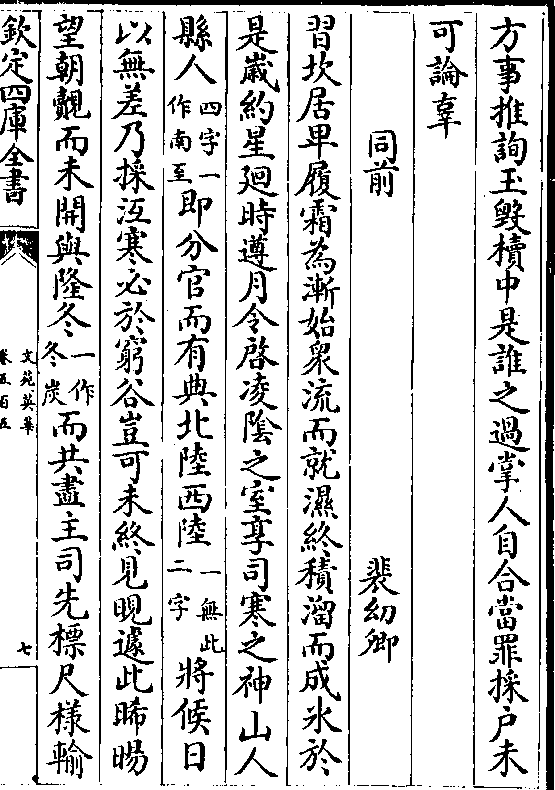 方事推詢玉毀櫝中是誰之過掌人自合當罪採户未
可論辜
同前
裴幼卿
習坎居卑履霜為漸始衆流而就濕終積溜而成氷於
是嵗約星廻時遵月令啓凌隂之室享司寒之神山人
縣人四字一作南至即分官而有典北陸西陸一無此二字將候日
以無差乃採沍寒必於窮谷豈可未終見晛遽此晞暘
望朝覿而未開與隆冬一作冬炭而共盡主司先標尺様輸
欽定四庫全書
文苑英華
卷五百五
七